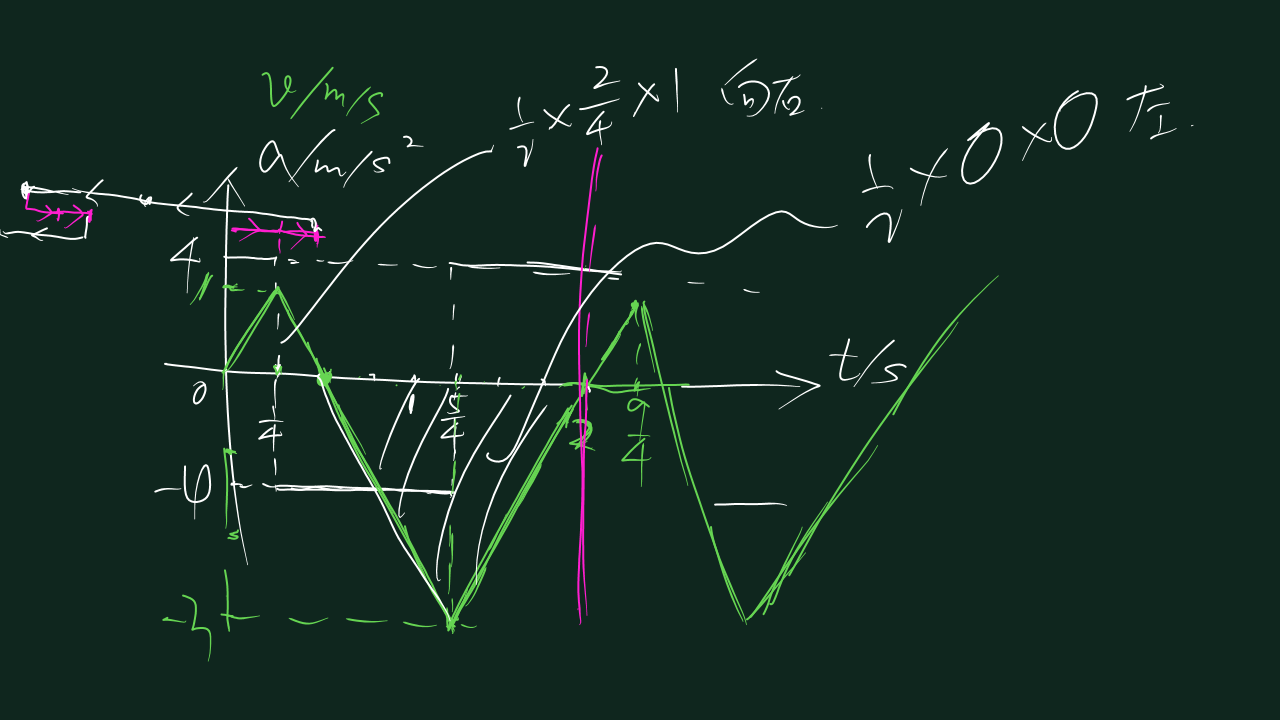 v/m/s
a/m/s²
1/2 × 2/4 × 1 向右
1/2 × 0 × 0 左
4
1
0
1/4
1
5/4
2
9/4
t/s
-4
-3